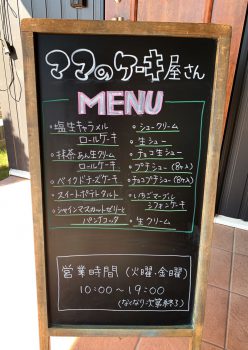 ママのケーキ屋さん
MENU
・塩生キャラメル
ロールケーキ
・抹茶あん生クリーム
ロールケーキ
・ベイクドチーズケーキ
・スイートポテトタルト
・シャインマスカットゼリーと
パンナコッタ
・シュークリーム
・生シュー
・チョコ生シュー
・プチシュー(8ヶ入)
・チョコプチシュー(8ヶ入)
・いちごマーブル
シフォンケーキ
・生クリーム
営業時間(火曜・金曜)
10:00〜19:00
(なくなり次第終了)